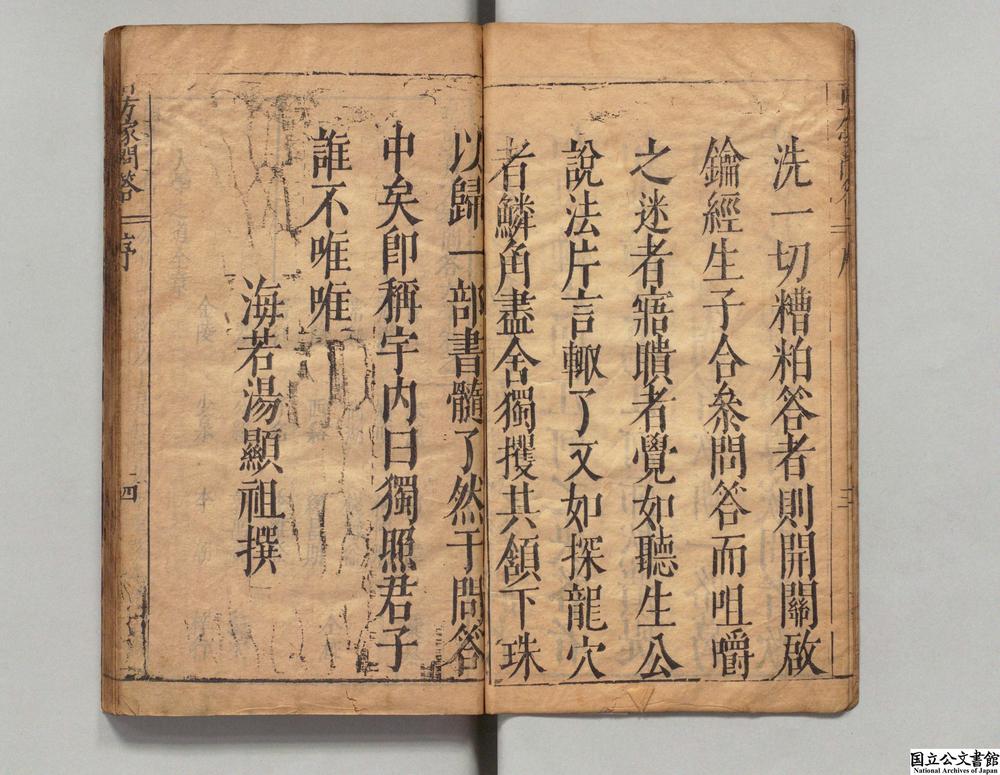 洗一切糟粕答者則開關啟
鑰經生子合叅問答而咀嚼
之迷者寤聵者覺如聽生公
說法片言輙了又如探龍穴
者鱗角盡舍獨擭其頷下珠
以歸一部書髓了然于問答
中矣卽稱宇内曰獨照君子
誰不唯唯
海若湯顯祖撰
方家問答
序
四
国立公文書館
National Archives of Japan